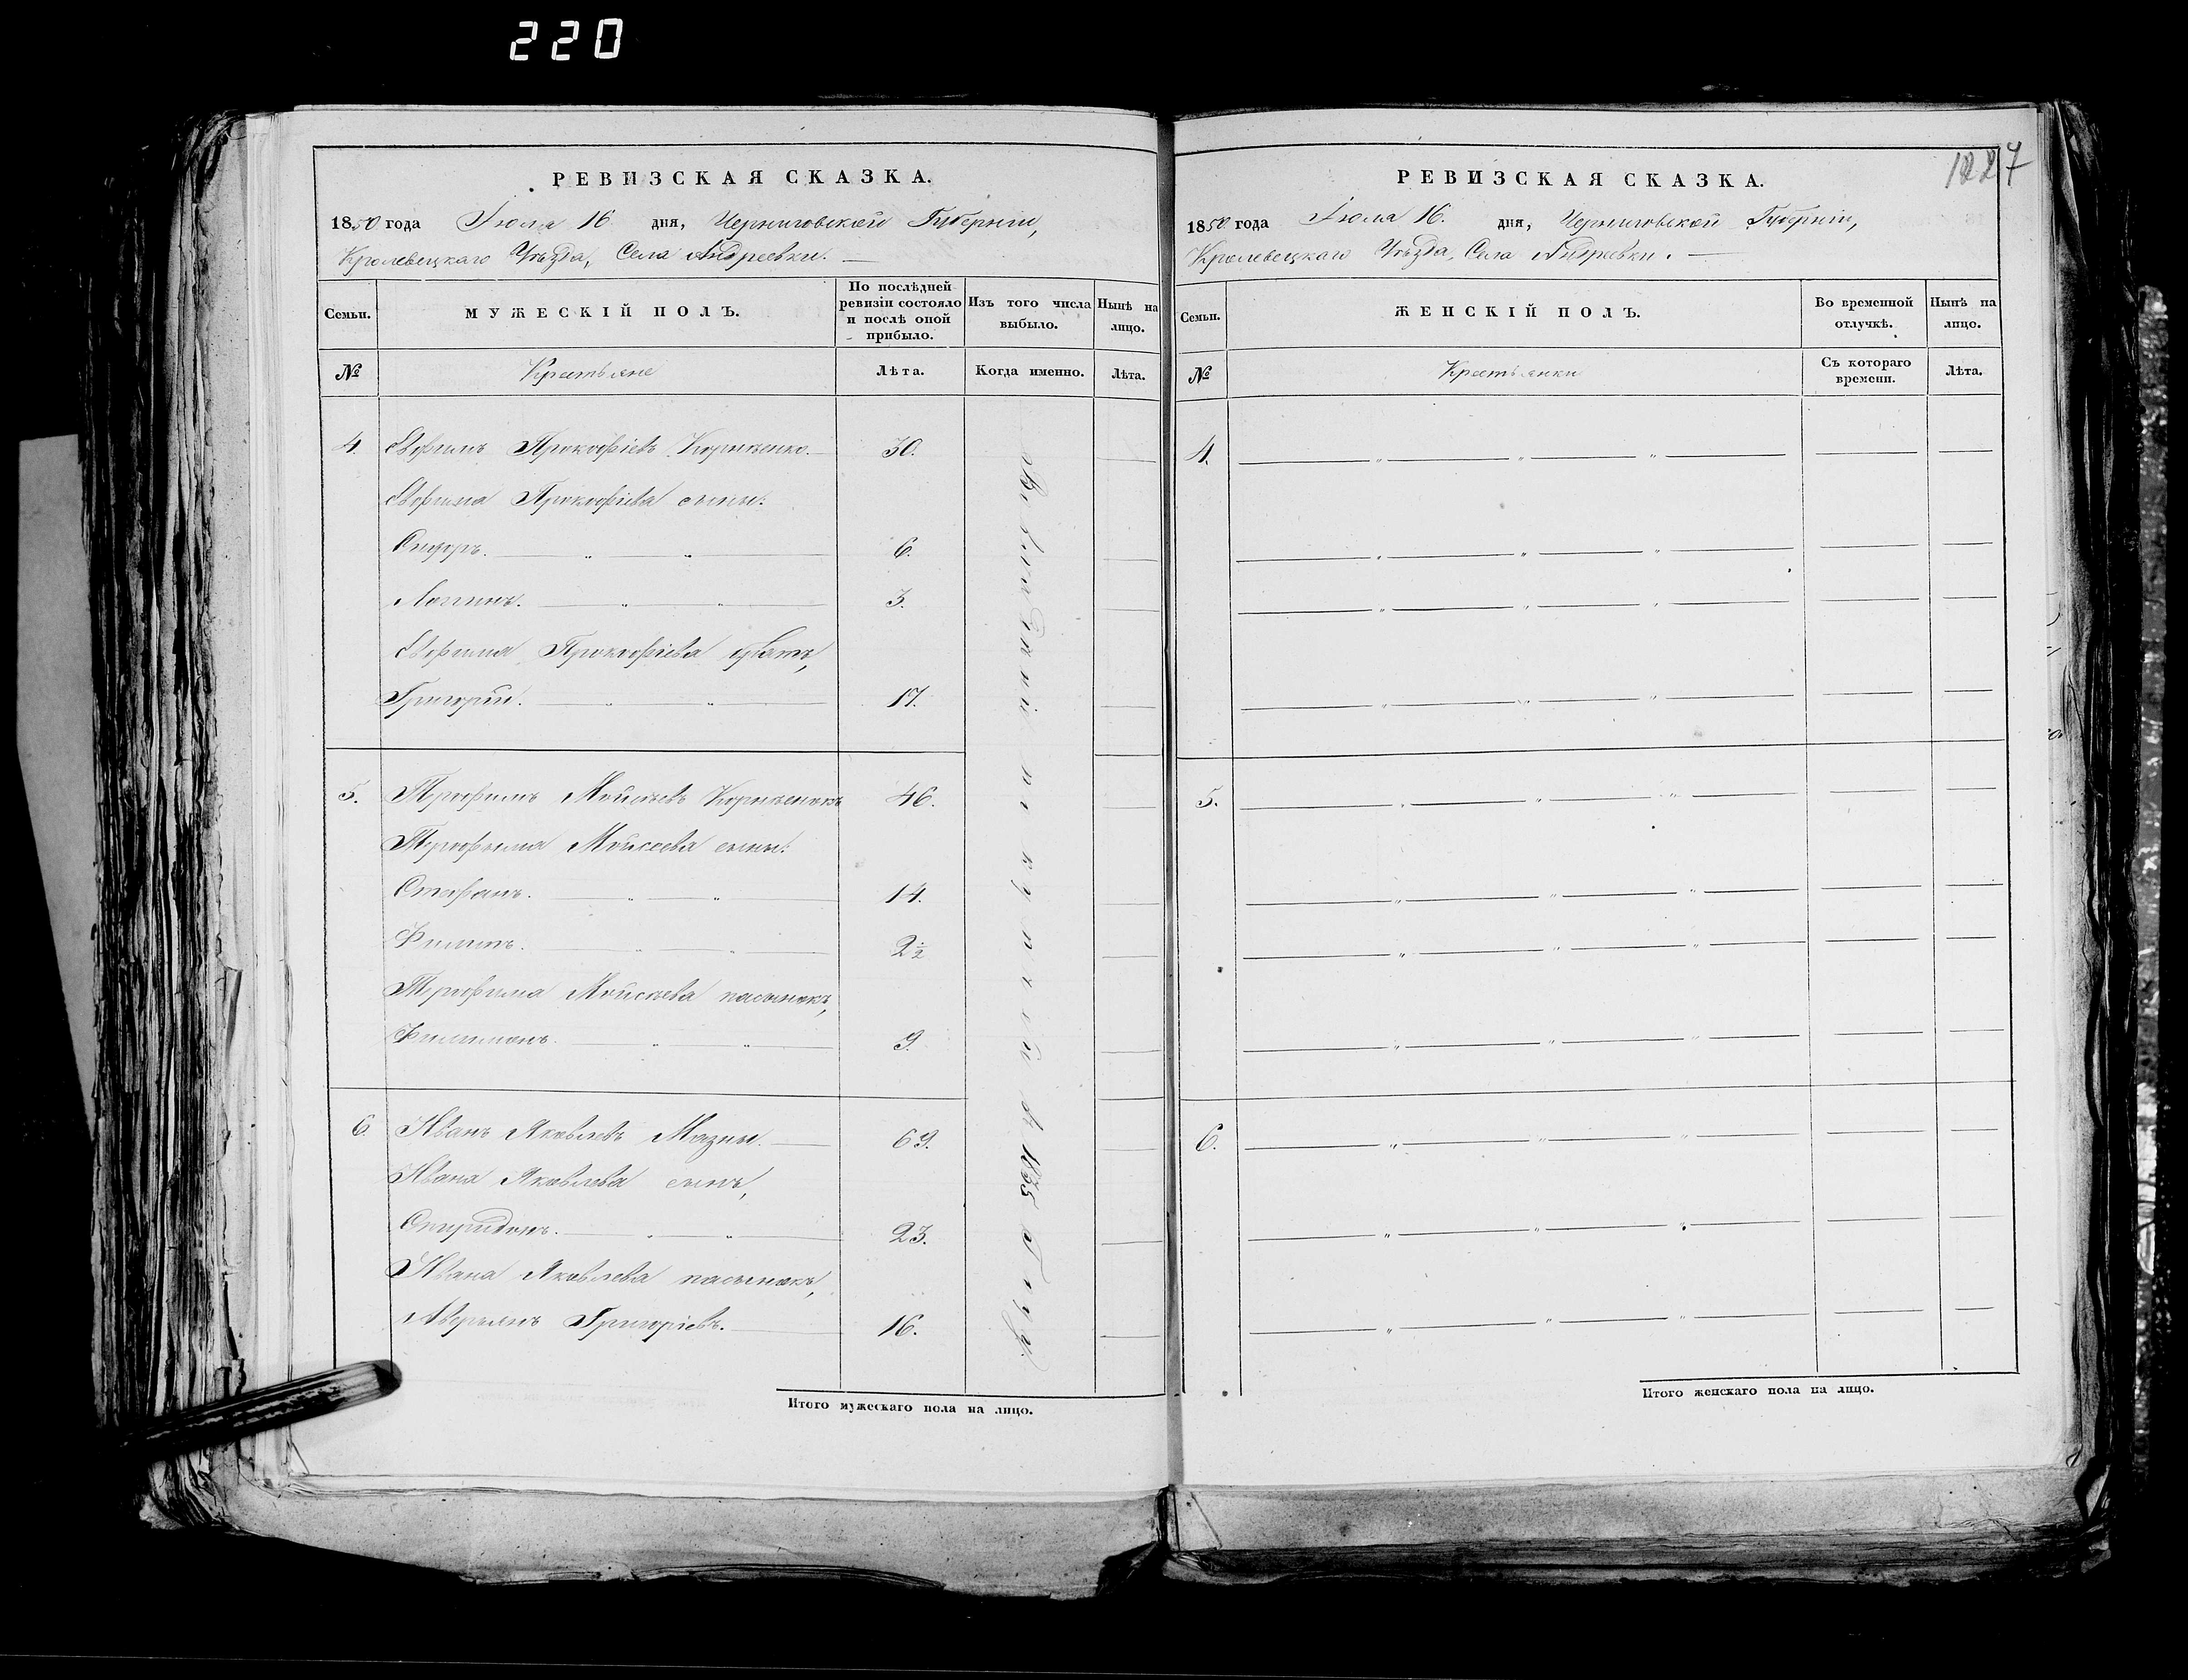 220
РЕВИЗСКАЯ СКАЗКА.
1850 года Іюля 16 дня, Черниговской Губерніи,
Кролевецкаго Уѣзда, Села Андреевки.
Семьи.
МУЖЕСКІЙ ПОЛЪ.
По послѣдней ревизіи состояло и послѣ оной прибыло.
Изъ того числа выбыло.
Нынѣ на лицо.
№
Крестьяне
Лѣта.
Когда именно.
Лѣта.
4. Ефимъ Прокофіевъ Корнѣенко. 30.
Ефима Прокофіева сыны:
Сидоръ. 6.
Логгинъ. 3.
Ефима Прокофіева братъ,
Григорій. 17.
5. Трофимъ Мойсѣевъ 46.
Трофима Мойсеева сыны:
Стефанъ. 14.
Филипъ. 2½
Трофима Мойсѣева пасынокъ,
Филимонъ. 9.
6. Иванъ Яковлевъ 69.
Ивана Яковлева сынъ,
Спиридонъ. 23.
Ивана Яковлева пасынокъ,
Аверьянъ Григоріевъ. 16.
1835
Итого мужескаго пола на лицо.
РЕВИЗСКАЯ СКАЗКА.
1850 года Іюля 16. дня, Черниговской Губерніи,
Кролевецкаго Уѣзда, Села Андреевки.
Семьи.
ЖЕНСКІЙ ПОЛЪ.
Во временной отлучкѣ.
Нынѣ на лицо.
№
Крестьянки
Съ котораго времени.
Лѣта.
4.
5.
6.
Итого женскаго пола на лицо.